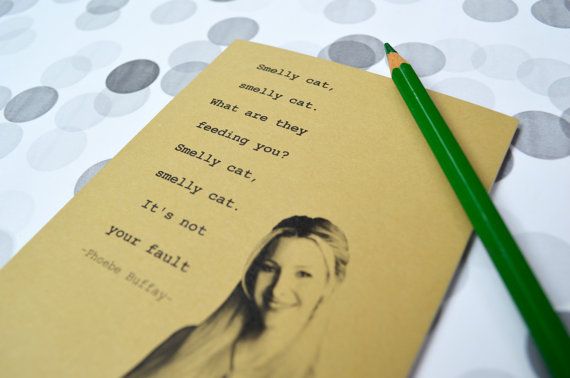 Smelly cat,
smelly cat.
What are they
feeding you?
Smelly cat,
smelly cat.
It's not
your fault
-Phoebe Buffay-